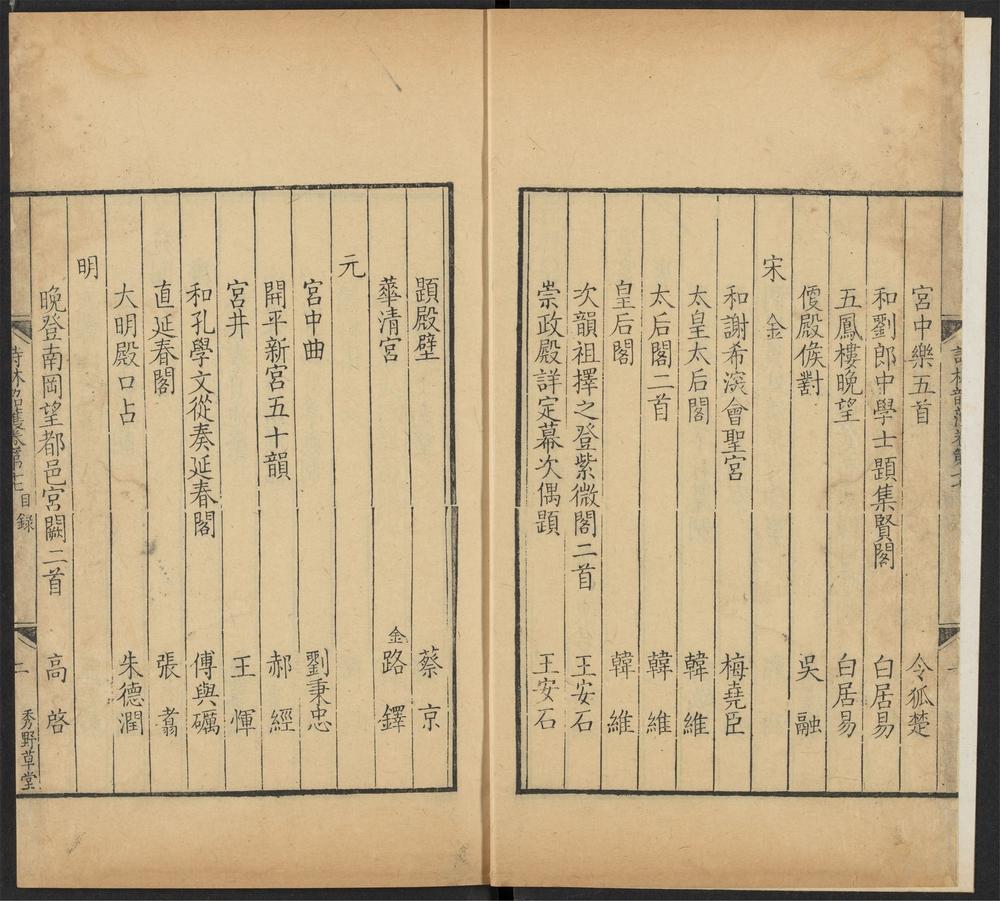 宮中樂五首 令狐楚
和劉郎中學士題集賢閣 白居易
五鳳樓晚望 白居易
便殿候對 吳融
宋 金
和謝希深會聖宮 梅堯臣
太皇太后閣 韓維
太后閣二首 韓維
皇后閣 韓維
次韻祖擇之登紫微閣二首 王安石
崇政殿詳定幕次偶題 王安石
題殿壁 蔡京
華清宮 金 路鐸
元
宮中曲 劉秉忠
開平新宮五十韻 郝經
宮井 王惲
和孔學文從奏延春閣 傅與礪
直延春閣 張翥
大明殿口占 朱德潤
明
晚登南岡望都邑宮闕二首 高啓
詩林韶濩卷第十七 目録 二 秀野草堂